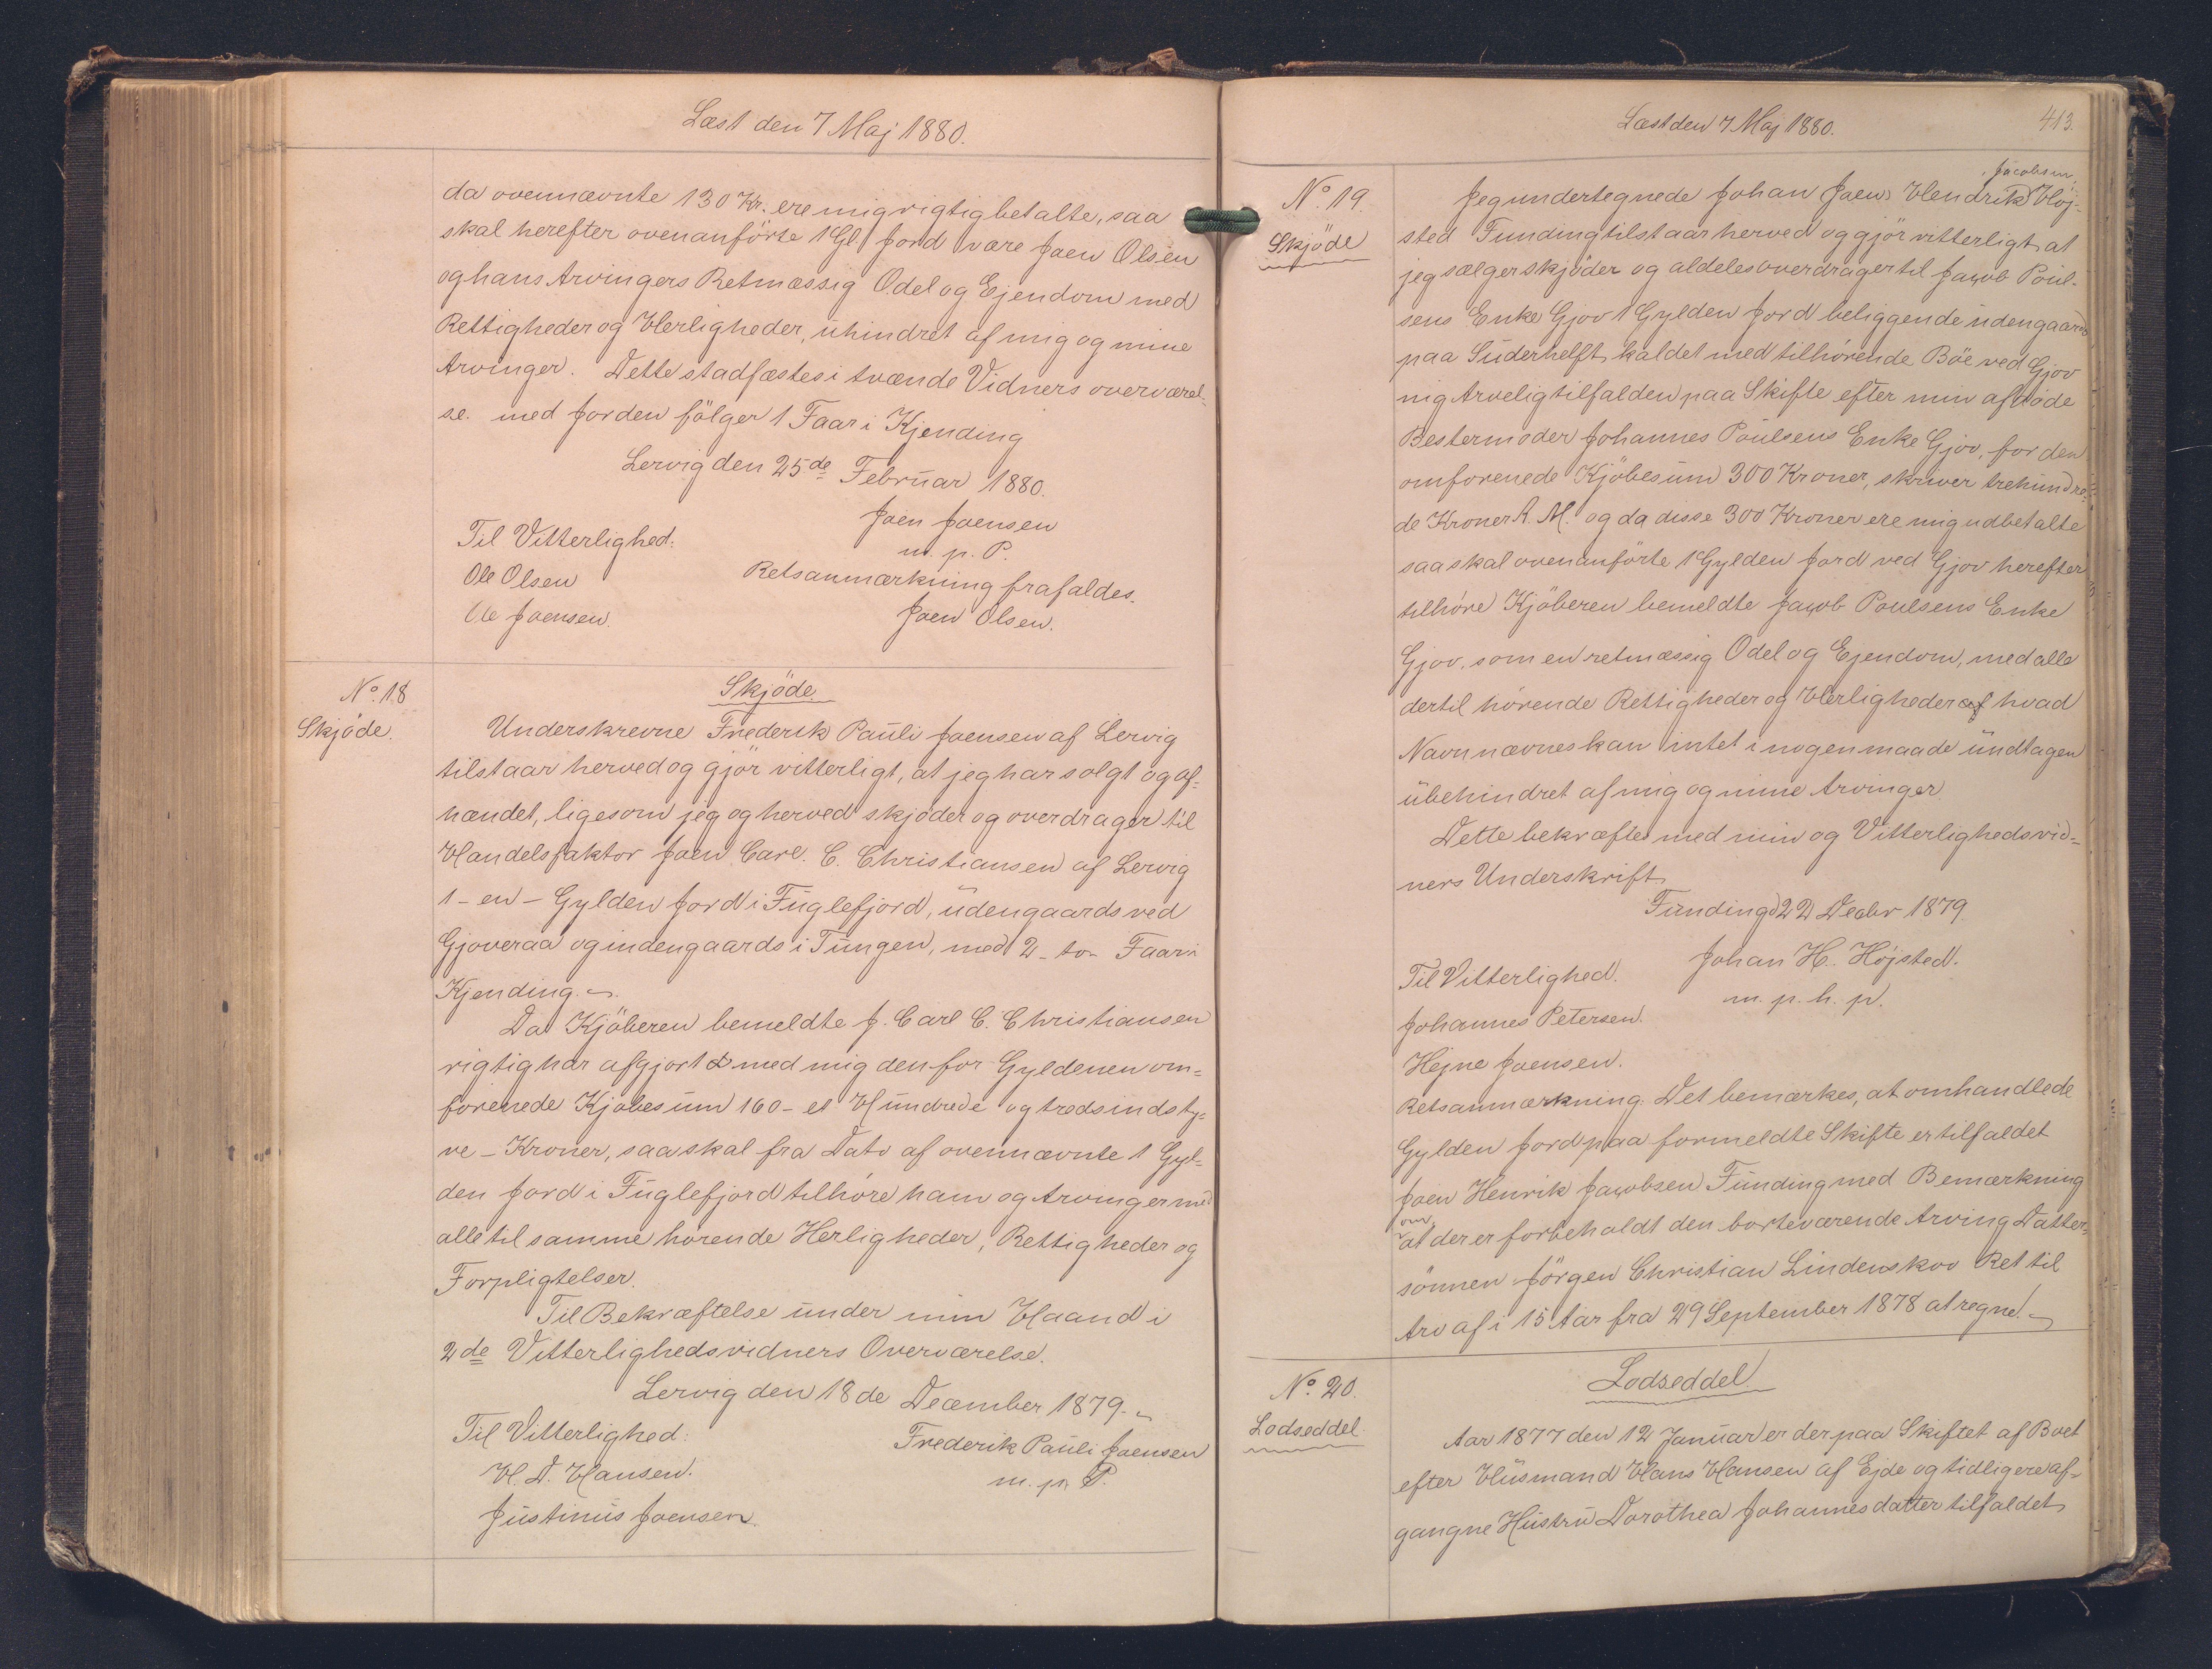 Læst den 7 Maj 1880.
da ovennævnte 130 Kr. ere mig rigtig betalte, saa
skal herefter ovenanförte 1 Gl. Jord være Joen Olsen
og hans Arvingers Retmæssig Odel og Ejendom med
Rettigheder og Herligheder, uhindret af mig og mine
Arvinger. Dette stadfæstes i tvænde Vidners overværel-
se. med Jorden fölger 1 Faar i Kjending
Lervig den 25de Februar 1880.
Joen Joensen
Til Vitterlighed:
m. p. P.
Ole Olsen
Retsanmærkning frafaldes.
Ole Joensen.
Joen Olsen.
No. 18
Skjöde.
Skjöde.
Underskrevne Frederik Pauli Joensen af Lervig
tilstaar herved og gjör vitterligt, at jeg har solgt og af-
hændet, ligesom jeg og herved skjöder og overdrager til
Handelsfaktor Joen Carl. C. Christiansen af Lervig
1 - en - Gylden Jord i Fuglefjord, udengaards ved
Gjoveraa og indengaards i Tungen, med 2 - to - Faar i
Kjending.
Da Kjöberen bemeldte J. Carl C. Christiansen
rigtig har afgjort med mig den for Gyldenen om-
forenede Kjöbesum 160 - et Hundrede og tredsindsty-
ve - Kroner, saa skal fra Dato af ovennævnte 1 Gyl-
den Jord i Fuglefjord tilhöre ham og Arvinger med
alle til samme hörende Herligheder, Rettigheder og
Forpligtelser.
Til Bekræftelse under min Haand i
2de Vitterlighedsvidners Overværelse.
Lervig den 18de December 1879.
Til Vitterlighed:
Frederik Pauli Joensen
H. D. Hansen.
m. p. P.
Justinus Joensen.
Læst den 7 Maj 1880.
413.
No. 19.
Skjöde
Jacobsen
Jeg undertegnede Johan Joen Hendrik Höj-
sted Funding tilstaar herved og gjör vitterligt at
jeg sælger skjöder og aldeles overdrager til Jacob Poul-
sens Enke Gjov 1 Gylden Jord beliggende udengaards
paa Suderhelft kaldet med tilhörende Böe ved Gjov
mig Arvelig tilfalden paa Skifte efter min afdöde
Bestemoder Johannes Poulsens Enke Gjov, for den
omforenede Kjöbesum 300 Kroner, skriver trehundre-
de Kroner R. M. og da disse 300 Kroner ere mig udbetalte
saa skal ovenanförte 1 Gylden Jord ved Gjov herefter
tilhöre Kjöberen bemeldte Jacob Poulsens Enke
Gjov, som en retmæssig Odel og Ejendom, med alle
dertil hörende Rettigheder og Herligheder af hvad
Navn nævnes kan intet i nogen maade undtagen
ubehindret af mig og mine Arvinger.
Dette bekræftes med min og Vitterlighedsvid-
ners Underskrift.
Funding d 22 Decbr 1879.
Johan H. Höjsted.
Til Vitterlighed.
m. p. h. p.
Johannes Petersen.
Hejne Joensen.
Retsanmærkning: Det bemærkes, at omhandlede
Gylden Jord paa formeldte Skifte er tilfaldet
Joen Henrik Jacobsen Funding med Bemærkning
om
at der er forbeholdt den borteværende Arving Datter-
sönnen Jörgen Christian Lindenskov Ret til
Arv af i 15 Aar fra 29 September 1878 at regne.
No. 20.
Lodseddel
Lodseddel
Aar 1877 den 12 Januar er der paa Skiftet af Boet
efter Husmand Hans Hansen af Ejde og tidligere af-
gangne Hustru Dorothea Johannesdatter tilfaldet